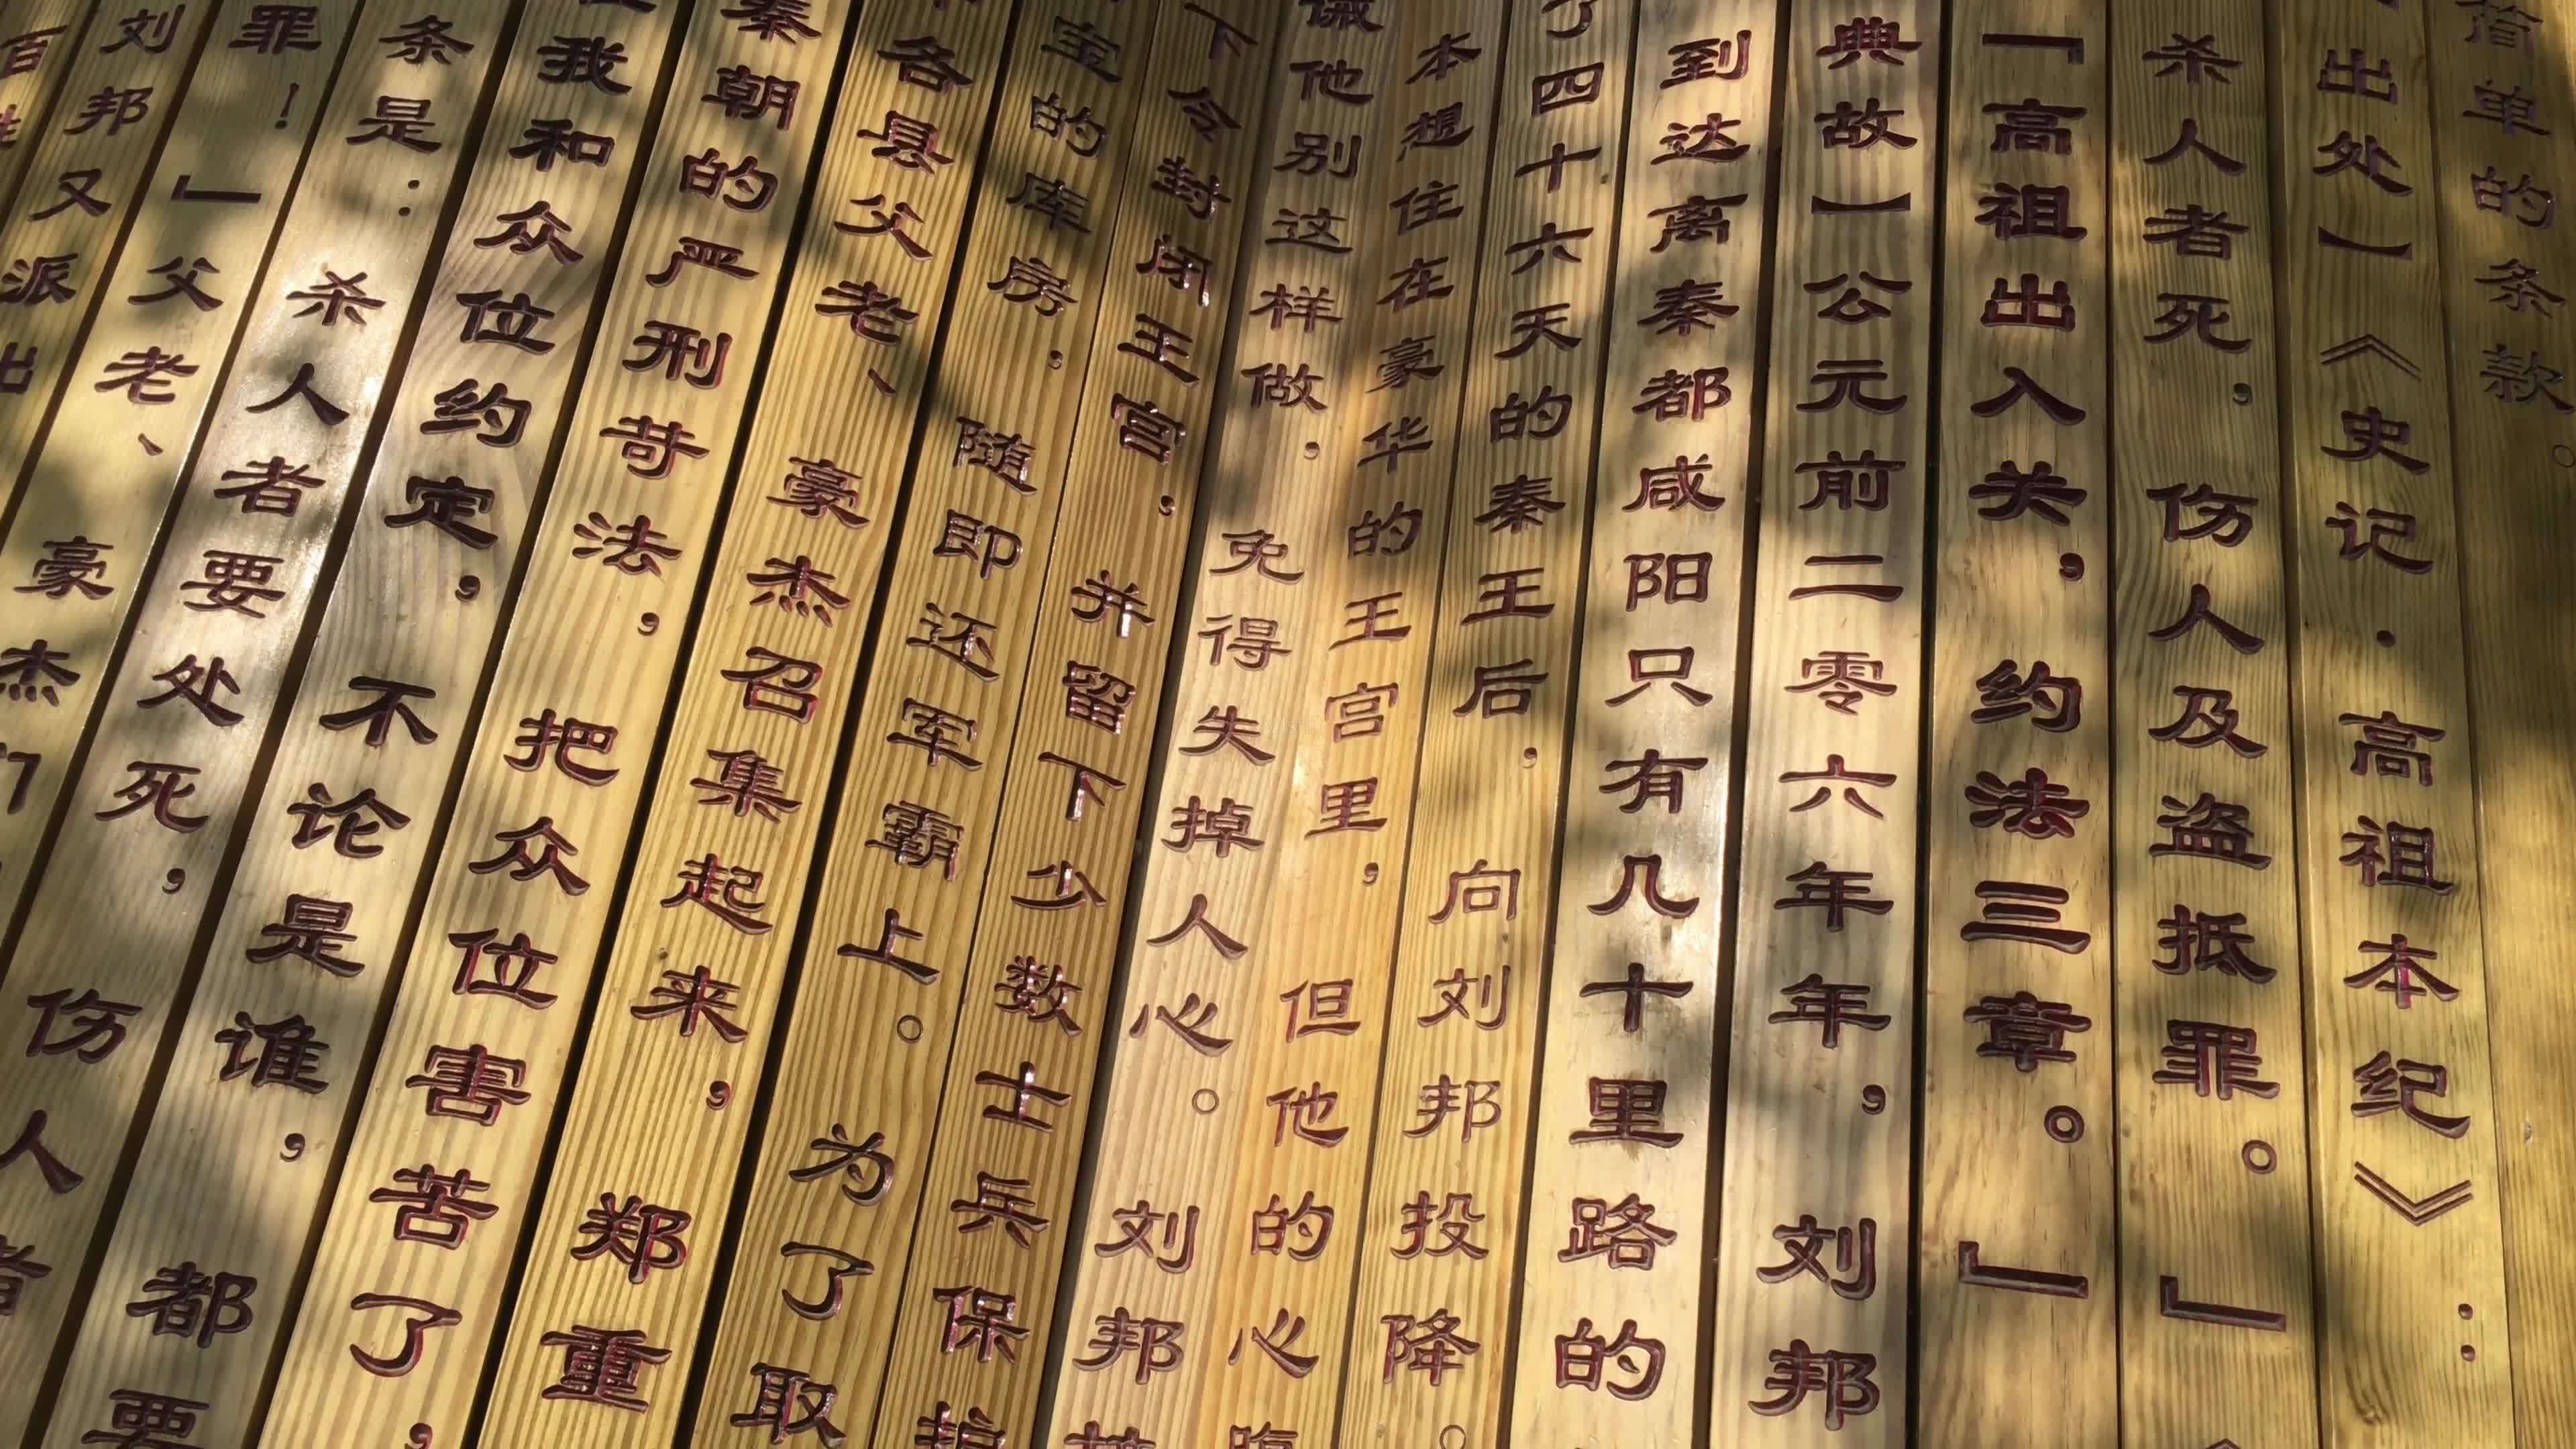 简单的条款。
出处】《史记·高祖本纪》：
杀人者死，伤人及盗抵罪。」
「高祖出入关，约法三章。」
典故】公元前二零六年年，刘邦
到达离秦都咸阳只有几十里路的
了四十六天的秦王后，向刘邦投降。
本想住在豪华的王宫里，但他的心
诫他别这样做，免得失掉人心。刘邦
下令封闭王宫，并留下少数士兵保护
宝的库房，随即还军霸上。为了取
各县父老、豪杰召集起来，郑重
秦朝的严刑苛法，把众位害苦了，
我和众位约定，不论是谁，都要
条是：杀人者要处死，伤人者
罪！」父老、豪杰们
刘邦又派出
百姓